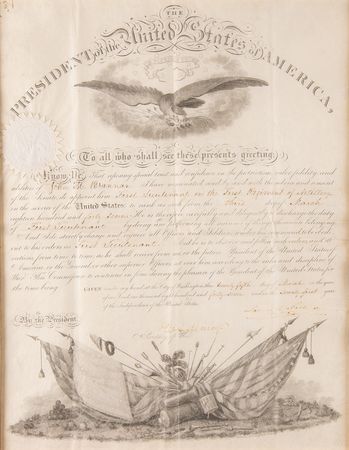 THE
PRESIDENT of the United States of AMERICA,
To all who shall see these presents greeting:
Know Ye, That reposing special trust and confidence in the patriotism, valor, fidelity and
abilities of John I have nominated and by and with the advice and consent
of the Senate, do appoint him First Lieutenant in the First Regiment of Artillery
in the service of the United States: to rank as such from the third day of March
eighteen hundred and forty seven. He is therefore carefully and diligently to discharge the duty
of First Lieutenant by doing and performing all manner of things thereunto
belonging. And I do strictly charge, and require all Officers and Soldiers under his command to be obedi-
ent to his orders as First Lieutenant. And he is to observe and follow such orders, and di-
rections, from time to time, as he shall receive from me, or the future President of the United States of
America, or the General or other superior Officers set over him, according to the rules and discipline of
War. This Commission to continue in force during the pleasure of the President of the United States, for
the time being.
GIVEN under my hand at the City of Washington this day of March in the year
of our Lord one thousand eight hundred and forty seven and in the first year
of the Independence of the United States.
By the President,
Secretary of War.